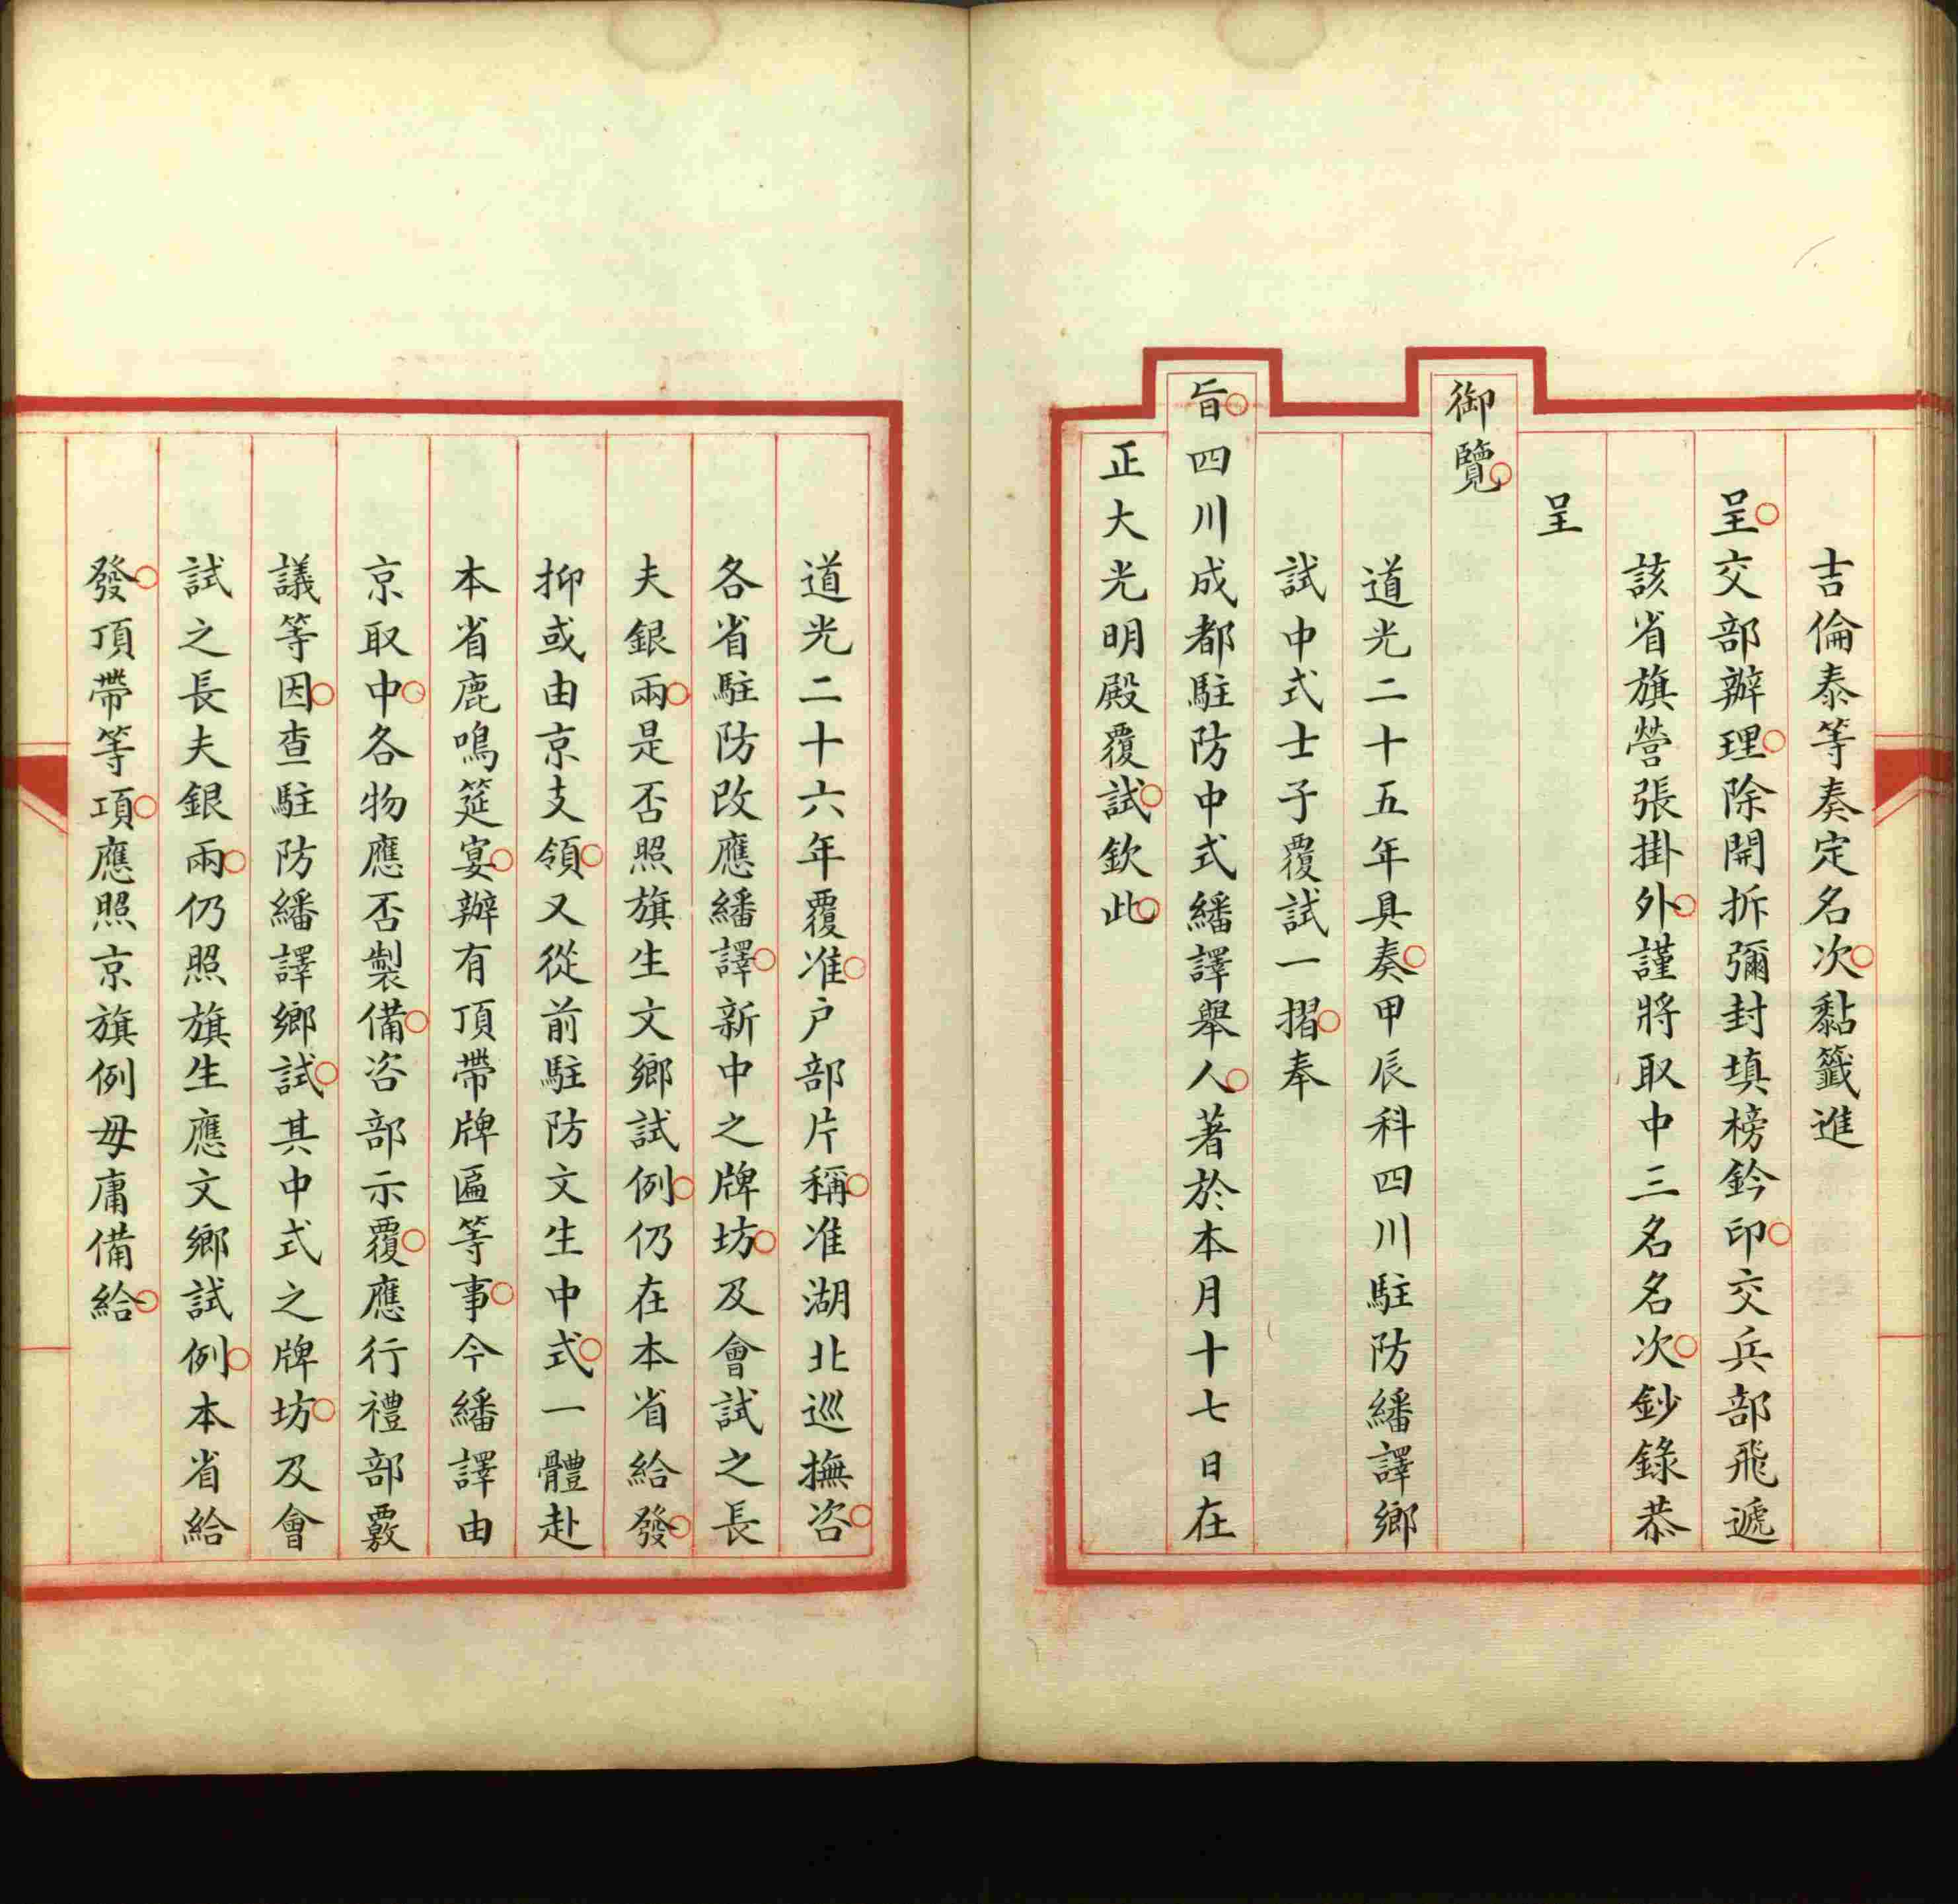 吉倫泰等奏定名次黏籤進
呈交部辦理除開拆彌封填榜鈐印交兵部飛遞
該省旗營張掛外謹將取中三名名次鈔錄恭
呈
御覽
道光二十五年具奏甲辰科四川駐防繙譯鄉
試中式士子覆試一摺奉
旨四川成都駐防中式繙譯舉人著於本月十七日在
正大光明殿覆試欽此
道光二十六年覆准户部片稱准湖北巡撫咨
各省駐防改應繙譯新中之牌坊及會試之長
夫銀兩是否照旗生文鄉試例仍在本省給發
抑或由京支領又從前駐防文生中式一體赴
本省鹿鳴筵宴辦有頂帶牌匾等事今繙譯由
京取中各物應否製備咨部示覆應行禮部覈
議等因查駐防繙譯鄉試其中式之牌坊及會
試之長夫銀兩仍照旗生應文鄉試例本省給
發頂帶等項應照京旗例毋庸備給